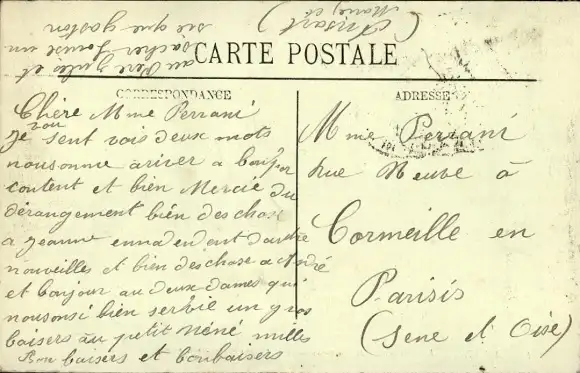 au Pere Jules et
sacher Louise un
sie que gaston
(Ansart)
Marie et
CARTE POSTALE
CORRESPONDANCE
Chère Mme Perrani
Je vou sent vois deux mots
nousomme ariver a bon por
content et bien Mercie du
dérangement bien des chose
a Jeanne ennadendent dautre
nouveilles et bien des chose a André
et bonjour au deux dames qui
nousonsi bien serbie un gros
baisers au petit Néné milles
Bon baisers et bonbaisers
ADRESSE
Mme Perrani
Rue Neuve à
Cormeille en
Parisis
(Sene et Oise)